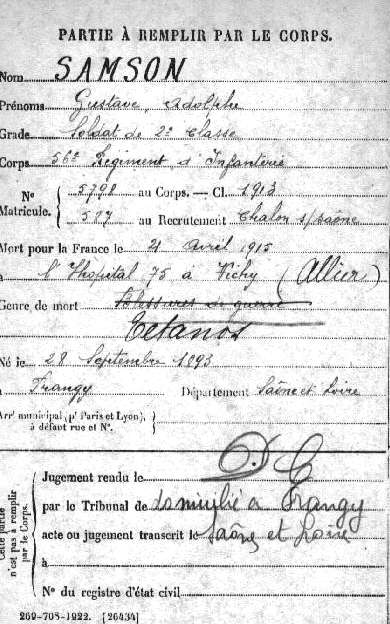 PARTIE À REMPLIR PAR LE CORPS.
Nom SAMSON
Prénoms Gustave, Adolphe
Grade Soldat de 2e classe
Corps 56e Régiment d'Infanterie
No Matricule. { 5798 au Corps. — Cl. 1913
au Recrutement Chalon s/Saône
Mort pour la France le 21 Avril 1915
à l'Hopital 75 à Vichy (Allier)
Genre de mort Blessures de guerre
Tetanos
Né le 28 Septembre 1893
à Frangy Département Saône et Loire
Arrt municipal (pr Paris et Lyon), }
à défaut rue et No.
Cette partie n'est pas à remplir par le Corps.
Jugement rendu le
par le Tribunal de domicilié à Frangy
acte ou jugement transcrit le Saône et Loire
à
No du registre d'état civil
269-708-1922. [26434]